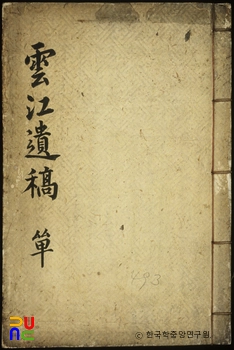 雲江遺稿 單
493
© 한국학중앙연구원